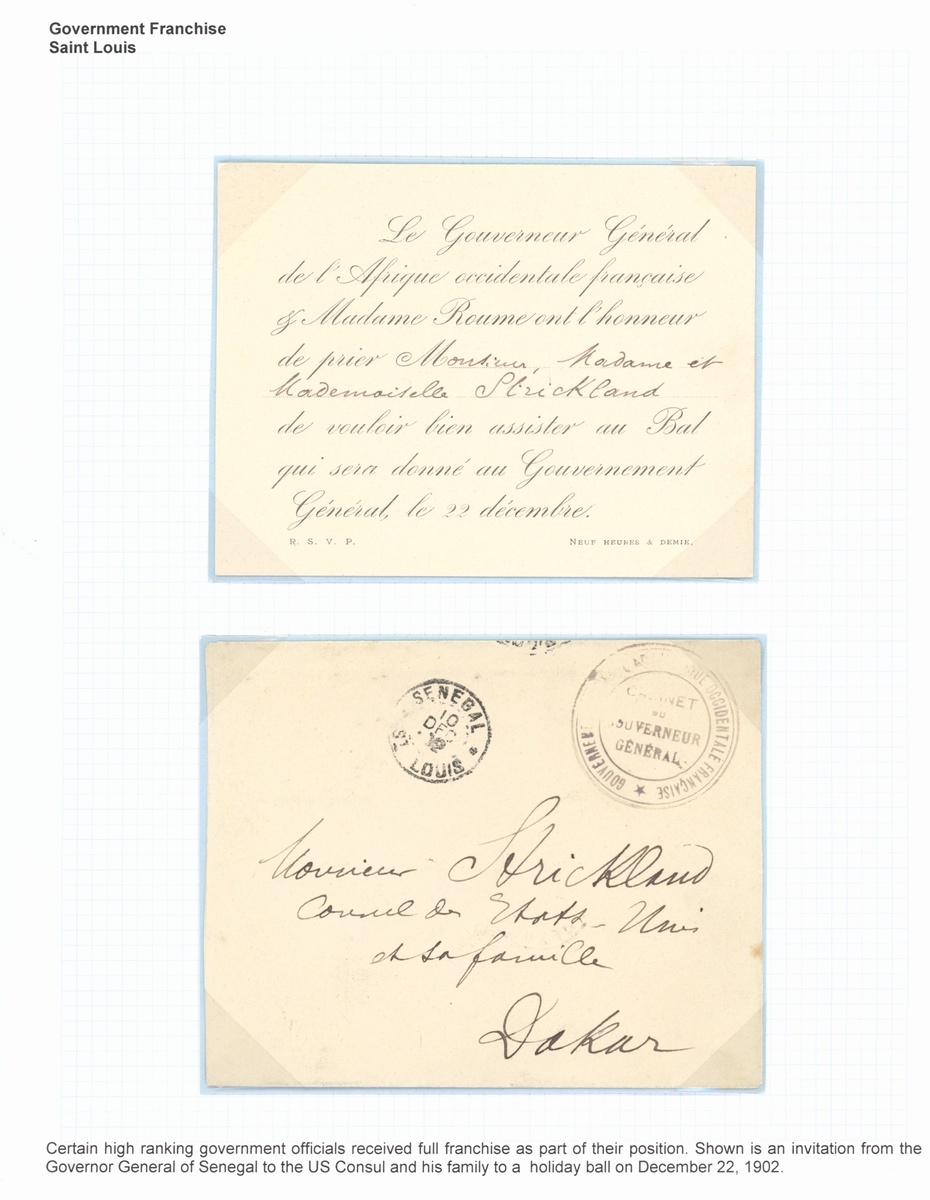 Government Franchise
Saint Louis
Le Gouverneur Général
de l'Afrique occidentale française
& Madame Roume ont l'honneur
de prier Monsieur, Madame et
Mademoiselle Strickland
de vouloir bien assister au Bal
qui sera donné au Gouvernement
Général, le 22 décembre.
R. S. V. P. NEUF HEURES & DEMIE.
SENEGAL
10
DEC
ST LOUIS *
OCCIDENTALE FRANÇAISE ★
CABINET
DU
GOUVERNEUR
GÉNÉRAL
Monsieur Strickland
Consul des Etats-Unis
et sa famille
Dakar
Certain high ranking government officials received full franchise as part of their position. Shown is an invitation from the
Governor General of Senegal to the US Consul and his family to a holiday ball on December 22, 1902.